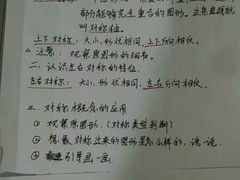 部分能够完全重合的图形。这条直线就
叫对称轴。
上下对称：大小、形状相同，上下方向相反。
注意：观察原图形的细节。
二、认识左右对称的特征
左右对称：大小、形状相同，左右方向相反。
三、对称概念的应用
① 观察原图形。（对称类型判断）
② 想象对称过来的图形是怎么样的，说一说。
③ 引导画一画。